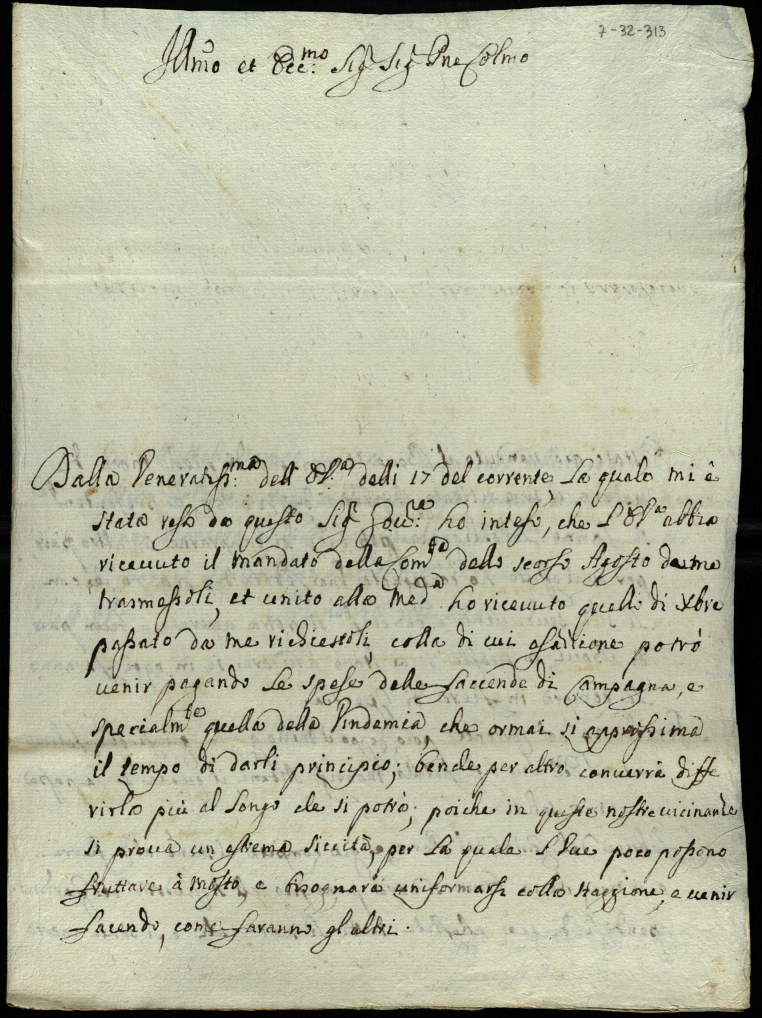 7-32-313
Illmo et Ecc:mo Sigr Sigr Pne Colmo
Dalla Veneratiss:ma dell' E V:ra delli 17 del corrente, la quale mi è
stata resa da questo Sigr ho inteso, che l' E V:ra abbia
ricevuto il mandato della Com:sa dello scorso Agosto da me
trasmessoli, et unito alla med:a ho ricevuto quello di Xbre
passato da me richiestoli, colla di cui esattione potrò
venir pagando le spese delle faccende di Campagna, e
specialm:te quella della Vindemia, che ormai si appressima
il tempo di darli principio; benche per altro converrà diffe
rirla più al longo che si potrà; poiche in queste nostre vicinanze
si prova un estrema siccità, per la quale l' Uve poco possono
fruttare à mosto, e bisognarà uniformarsi colla staggione, e venir
facendo, come faranno gl'altri.